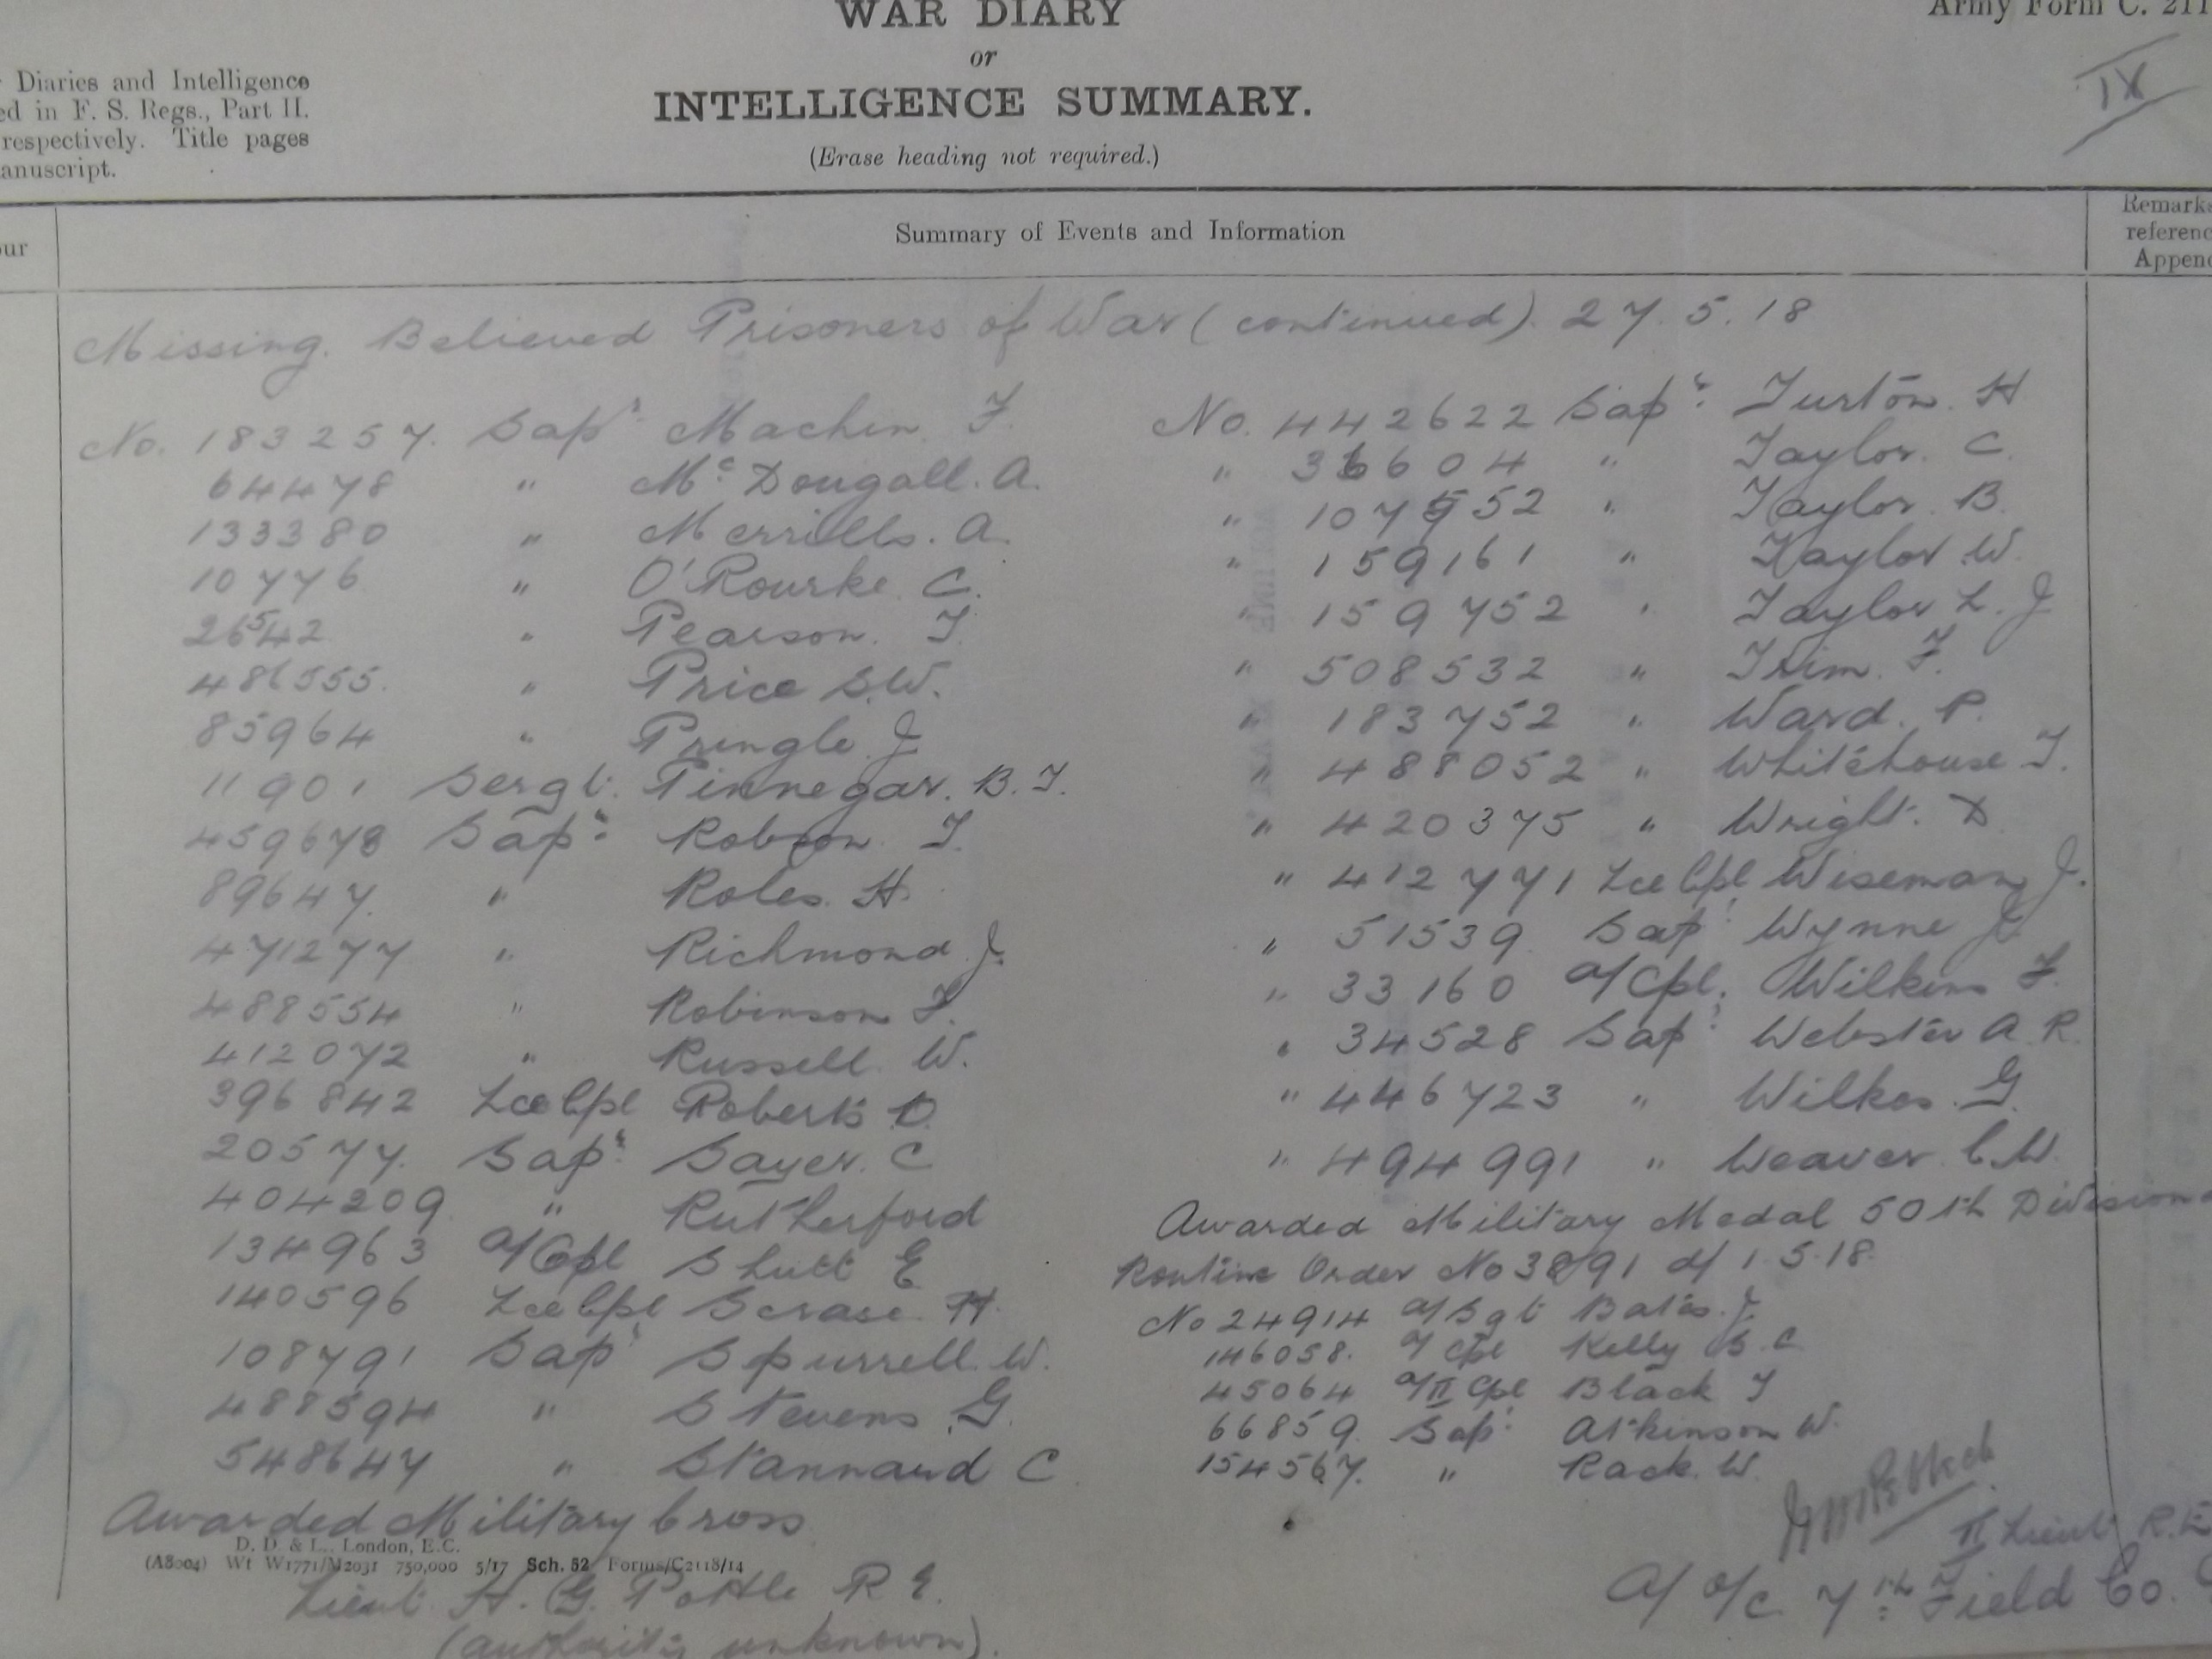 WAR DIARY
or
INTELLIGENCE SUMMARY.
(Erase heading not required.)
Army Form C. 211
IX
Diaries and Intelligence
ed in F. S. Regs., Part II.
respectively. Title pages
anuscript.
our
Summary of Events and Information
Remarks
referenc
Appen
Missing. Believed Prisoners of War (continued). 27.5.18
No. 183257. Sapr Machin F.
64478 " McDougall. A.
133380 " Merrills. A.
10776 " O'Rourke. C.
26542 " Pearson. T.
486555. " Price S.W.
85964 " Pringle J
11901 Sergt. Pinnegar. B.T.
459678 Sapr. Robson T.
89647. " Roles. H.
471277 " Richmond J.
488554 " Robinson F.
412072 " Russell W.
396842 Lce Cpl Roberts D.
20577. Sapr. Sayer. C
404209 " Rutherford
134963 A/Cpl Shutt E
140596 Lce Cpl Scrase H.
108791 Sapr Spurrell. W.
488594 " Stevens G.
548647 " Stannard C
Awarded Military Cross
D. D. & L., London, E.C.
(A8004) Wt W1771/M2031 750,000 5/17 Sch. 52 Forms/C2118/14
Lieut. H. G. Pottle R E.
(authority unknown).
No. 442622 Sapr. Turton. H
" 36604 " Taylor. C.
" 107552 " Taylor B.
" 159161 " Taylor W.
" 159752 " Taylor L. J
" 508532 " Trim. F.
" 183752 " Ward. P.
" 488052 " Whitehouse T.
" 420375 " Wright. D
" 412771 Lce Cpl Wiseman J.
" 51539 Sapr Wynne J
" 33160 A/Cpl. Wilkins F.
" 34528 Sapr Webster A. R.
" 446723 " Wilkes G.
" 494991 " Weaver C.W.
Awarded Military Medal 50th Division
Routine Order No 3891 d/ 1.5.18.
No 24914 A/Sgt Bates. J.
146058. A/Cpl Kelly B. C
45064 A/II Cpl Black T
66859. Sapr. Atkinson W.
154567. " Rack. W.
II Lieut R.E
A/ O/C 7th Field Co.